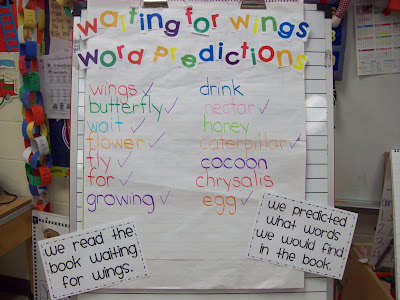 waiting for wings
word predictions
wings ✓
butterfly ✓
wait ✓
flower ✓
fly ✓
for ✓
growing ✓
drink
nectar ✓
honey
caterpillar ✓
cocoon
chrysalis
egg ✓
we read the
book waiting
for wings.
we predicted
what words
we would find
in the book.